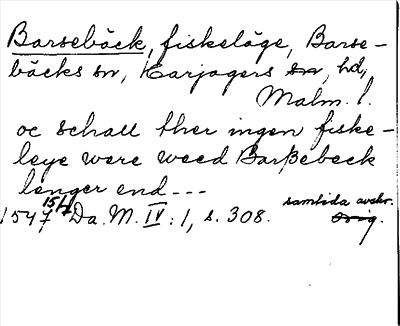 Barsebäck, fiskeläge, Barse-
bäcks sn, Harjagers sn, hd,
Malm. l.
oc schall ther ingen fiske-
leye were weed Barßebeck
lenger end ---
1547 15/4 Da. M. IV: 1, s. 308. samtida avskr.
orig.